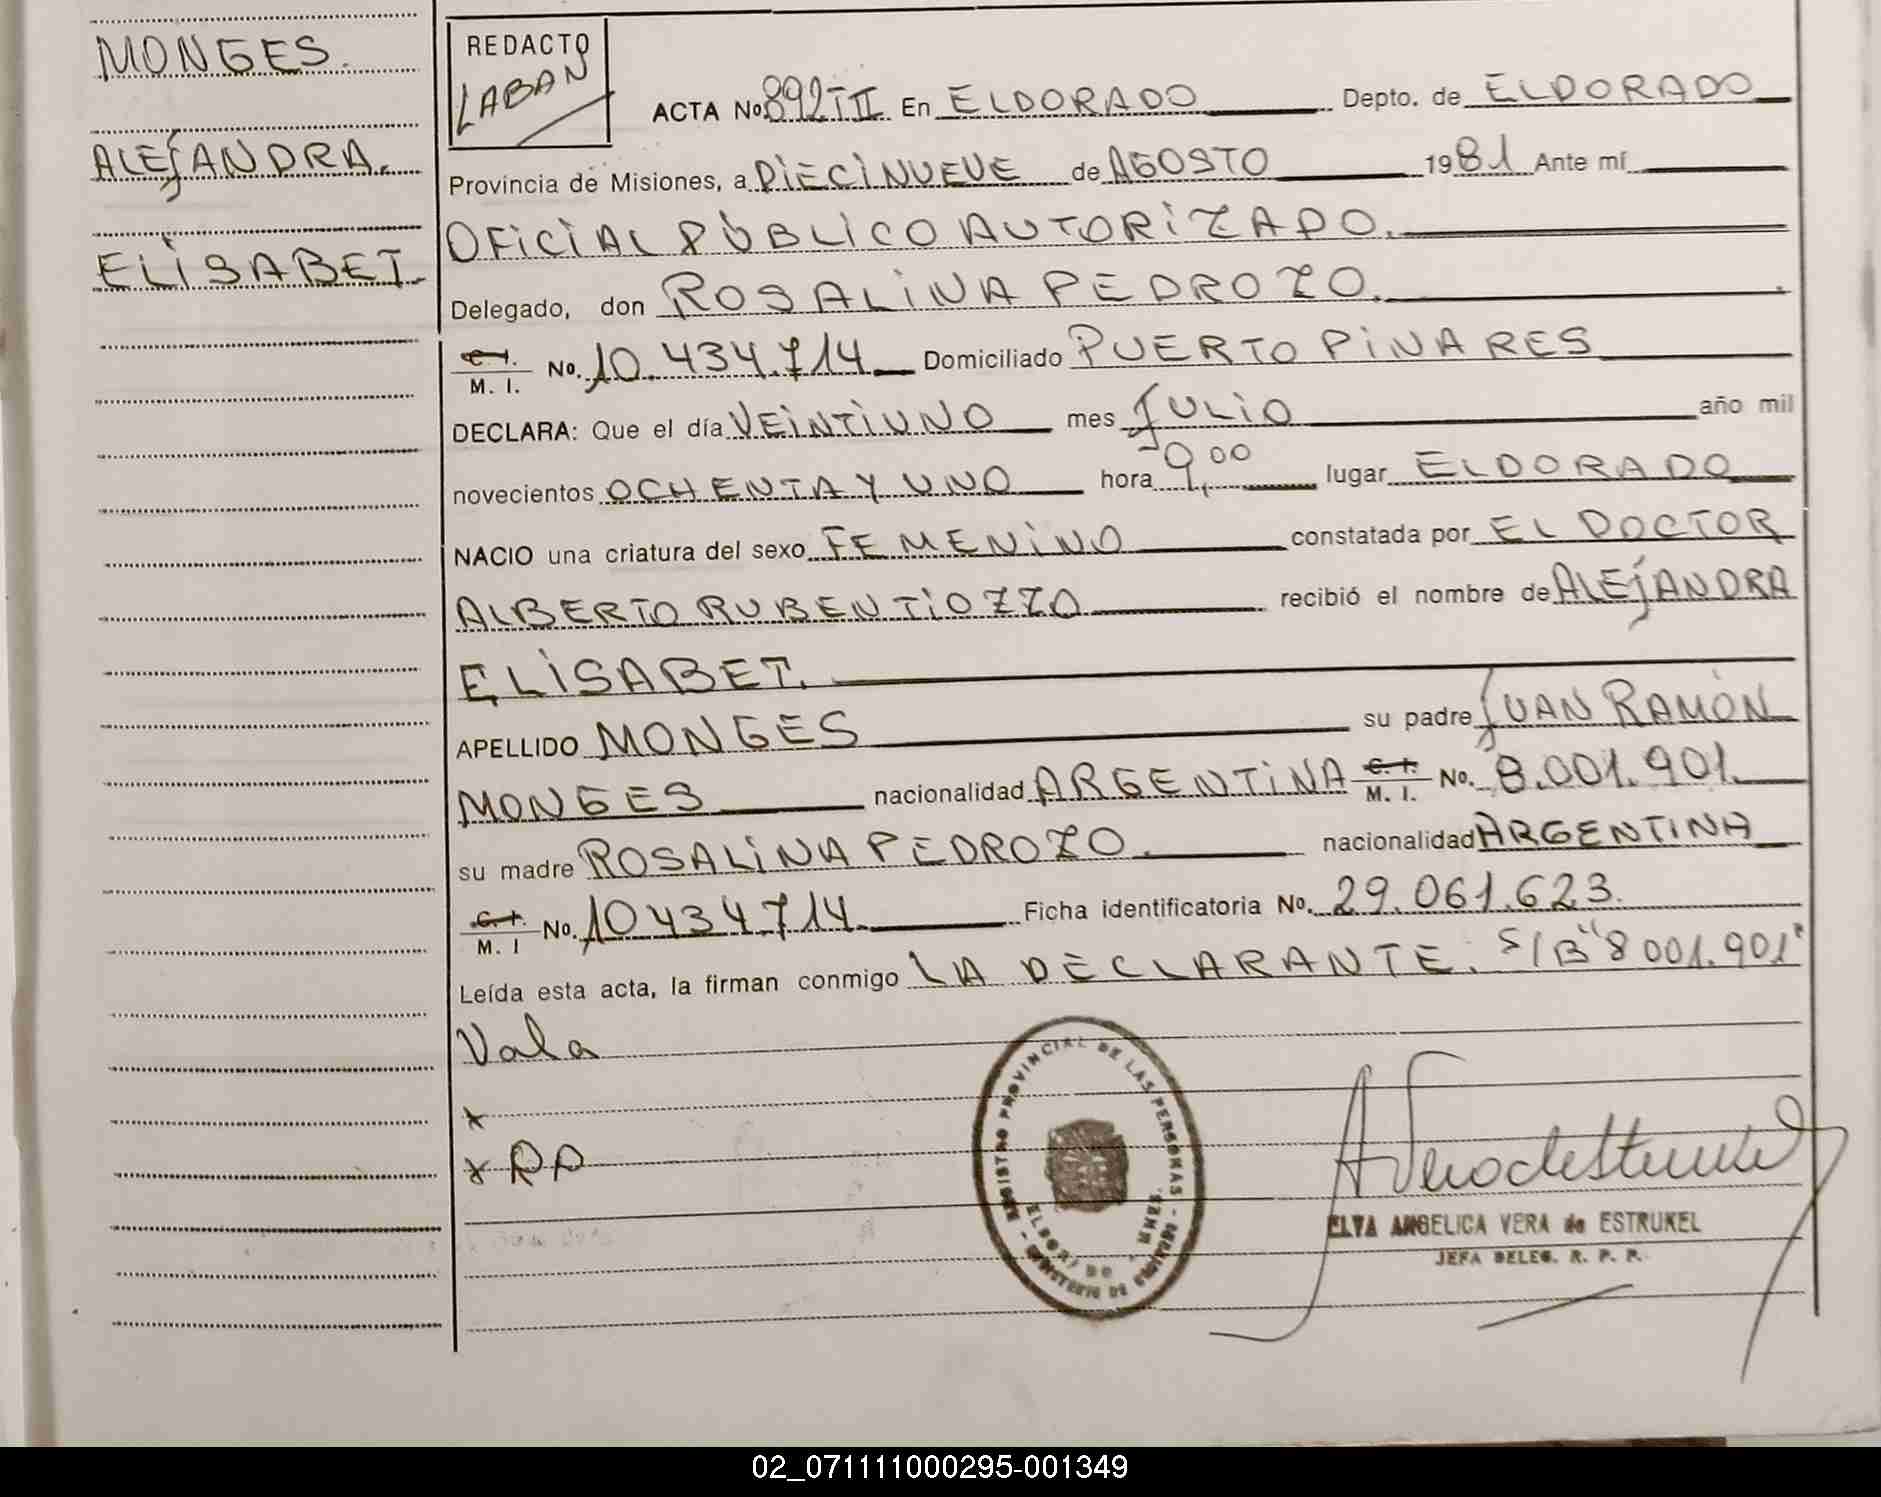 MONGES.
ALEJANDRA.
ELISABET.
REDACTO
LABAN
ACTA No. 892 T II En ELDORADO Depto. de ELDORADO
Provincia de Misiones, a DIECINUEVE de AGOSTO 1981 Ante mí
OFICIAL PÚBLICO AUTORIZADO.
Delegado, don ROSALINA PEDROZO.
C. I. / M. I. No. 10.434.714 Domiciliado PUERTO PINARES
DECLARA: Que el día VEINTIUNO mes JULIO año mil
novecientos OCHENTA Y UNO hora 9,00 lugar ELDORADO
NACIO una criatura del sexo FEMENINO constatada por EL DOCTOR
ALBERTO RUBEN TIOZZO recibió el nombre de ALEJANDRA
ELISABET.
APELLIDO MONGES su padre JUAN RAMÓN
MONGES nacionalidad ARGENTINA C. I. / M. I. No. 8.001.901.
su madre ROSALINA PEDROZO. nacionalidad ARGENTINA
C. I. / M. I No. 10434714 Ficha identificatoria No. 29.061.623.
Leída esta acta, la firman conmigo LA DECLARANTE. S/B "8001.901"
Vala
x
x RP
REGISTRO PROVINCIAL DE LAS PERSONAS - MINISTERIO DE GOBIERNO -
ELDORADO
ELVA ANGELICA VERA de ESTRUKEL
JEFA DELEG. R. P. P.
02_071111000295-001349